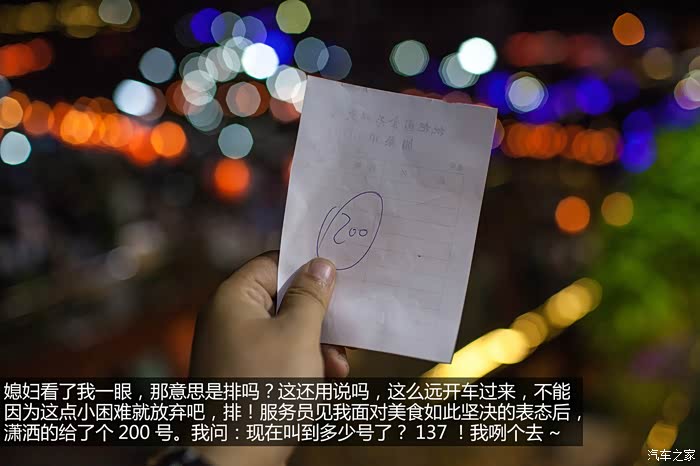 200
媳妇看了我一眼，那意思是排吗？这还用说吗，这么远开车过来，不能
因为这点小困难就放弃吧，排！服务员见我面对美食如此坚决的表态后，
潇洒的给了个 200 号。我问：现在叫到多少号了？ 137 ！我咧个去 ~
汽车之家